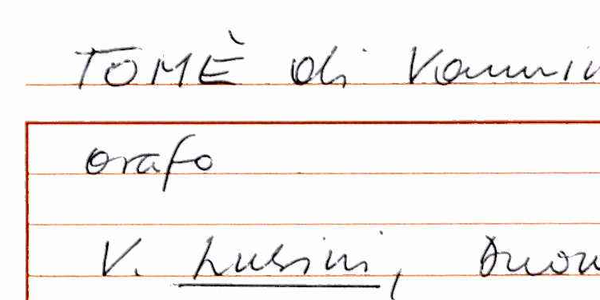 TOMÈ di Vannin
orafo
V. Lusini, Duom